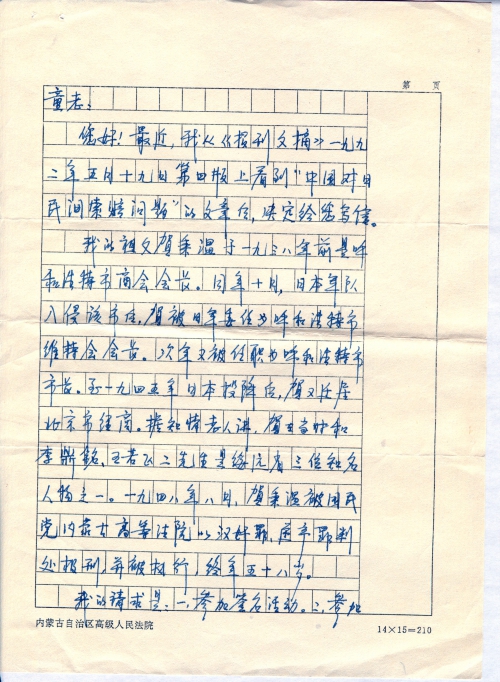 第　页
童老：
您好！最近，我从《报刊文摘》一九九
二年五月十九日第四版上看到"中国对日
民间索赔问题"的文章后，决定给您写信。
我的祖父贺秉温于一九三八年前是呼
和浩特市商会会长。同年十月，日本军队
入侵该市后，贺被日军委任为呼和浩特市
维持会会长。次年又被任职为呼和浩特市
市长。至一九四五年日本投降后，贺又迁居
北京市经商。据知情老人讲，贺在当时和
李鼎铭、王若飞二先生是绥远省三位知名
人物之一。一九四八年八月，贺秉温被国民
党内蒙古高等法院以汉奸罪、
处极刑，并被执行，终年五十八岁。
我的请求是：一、参加签名活动。二、参加
内蒙古自治区高级人民法院
14×15=210